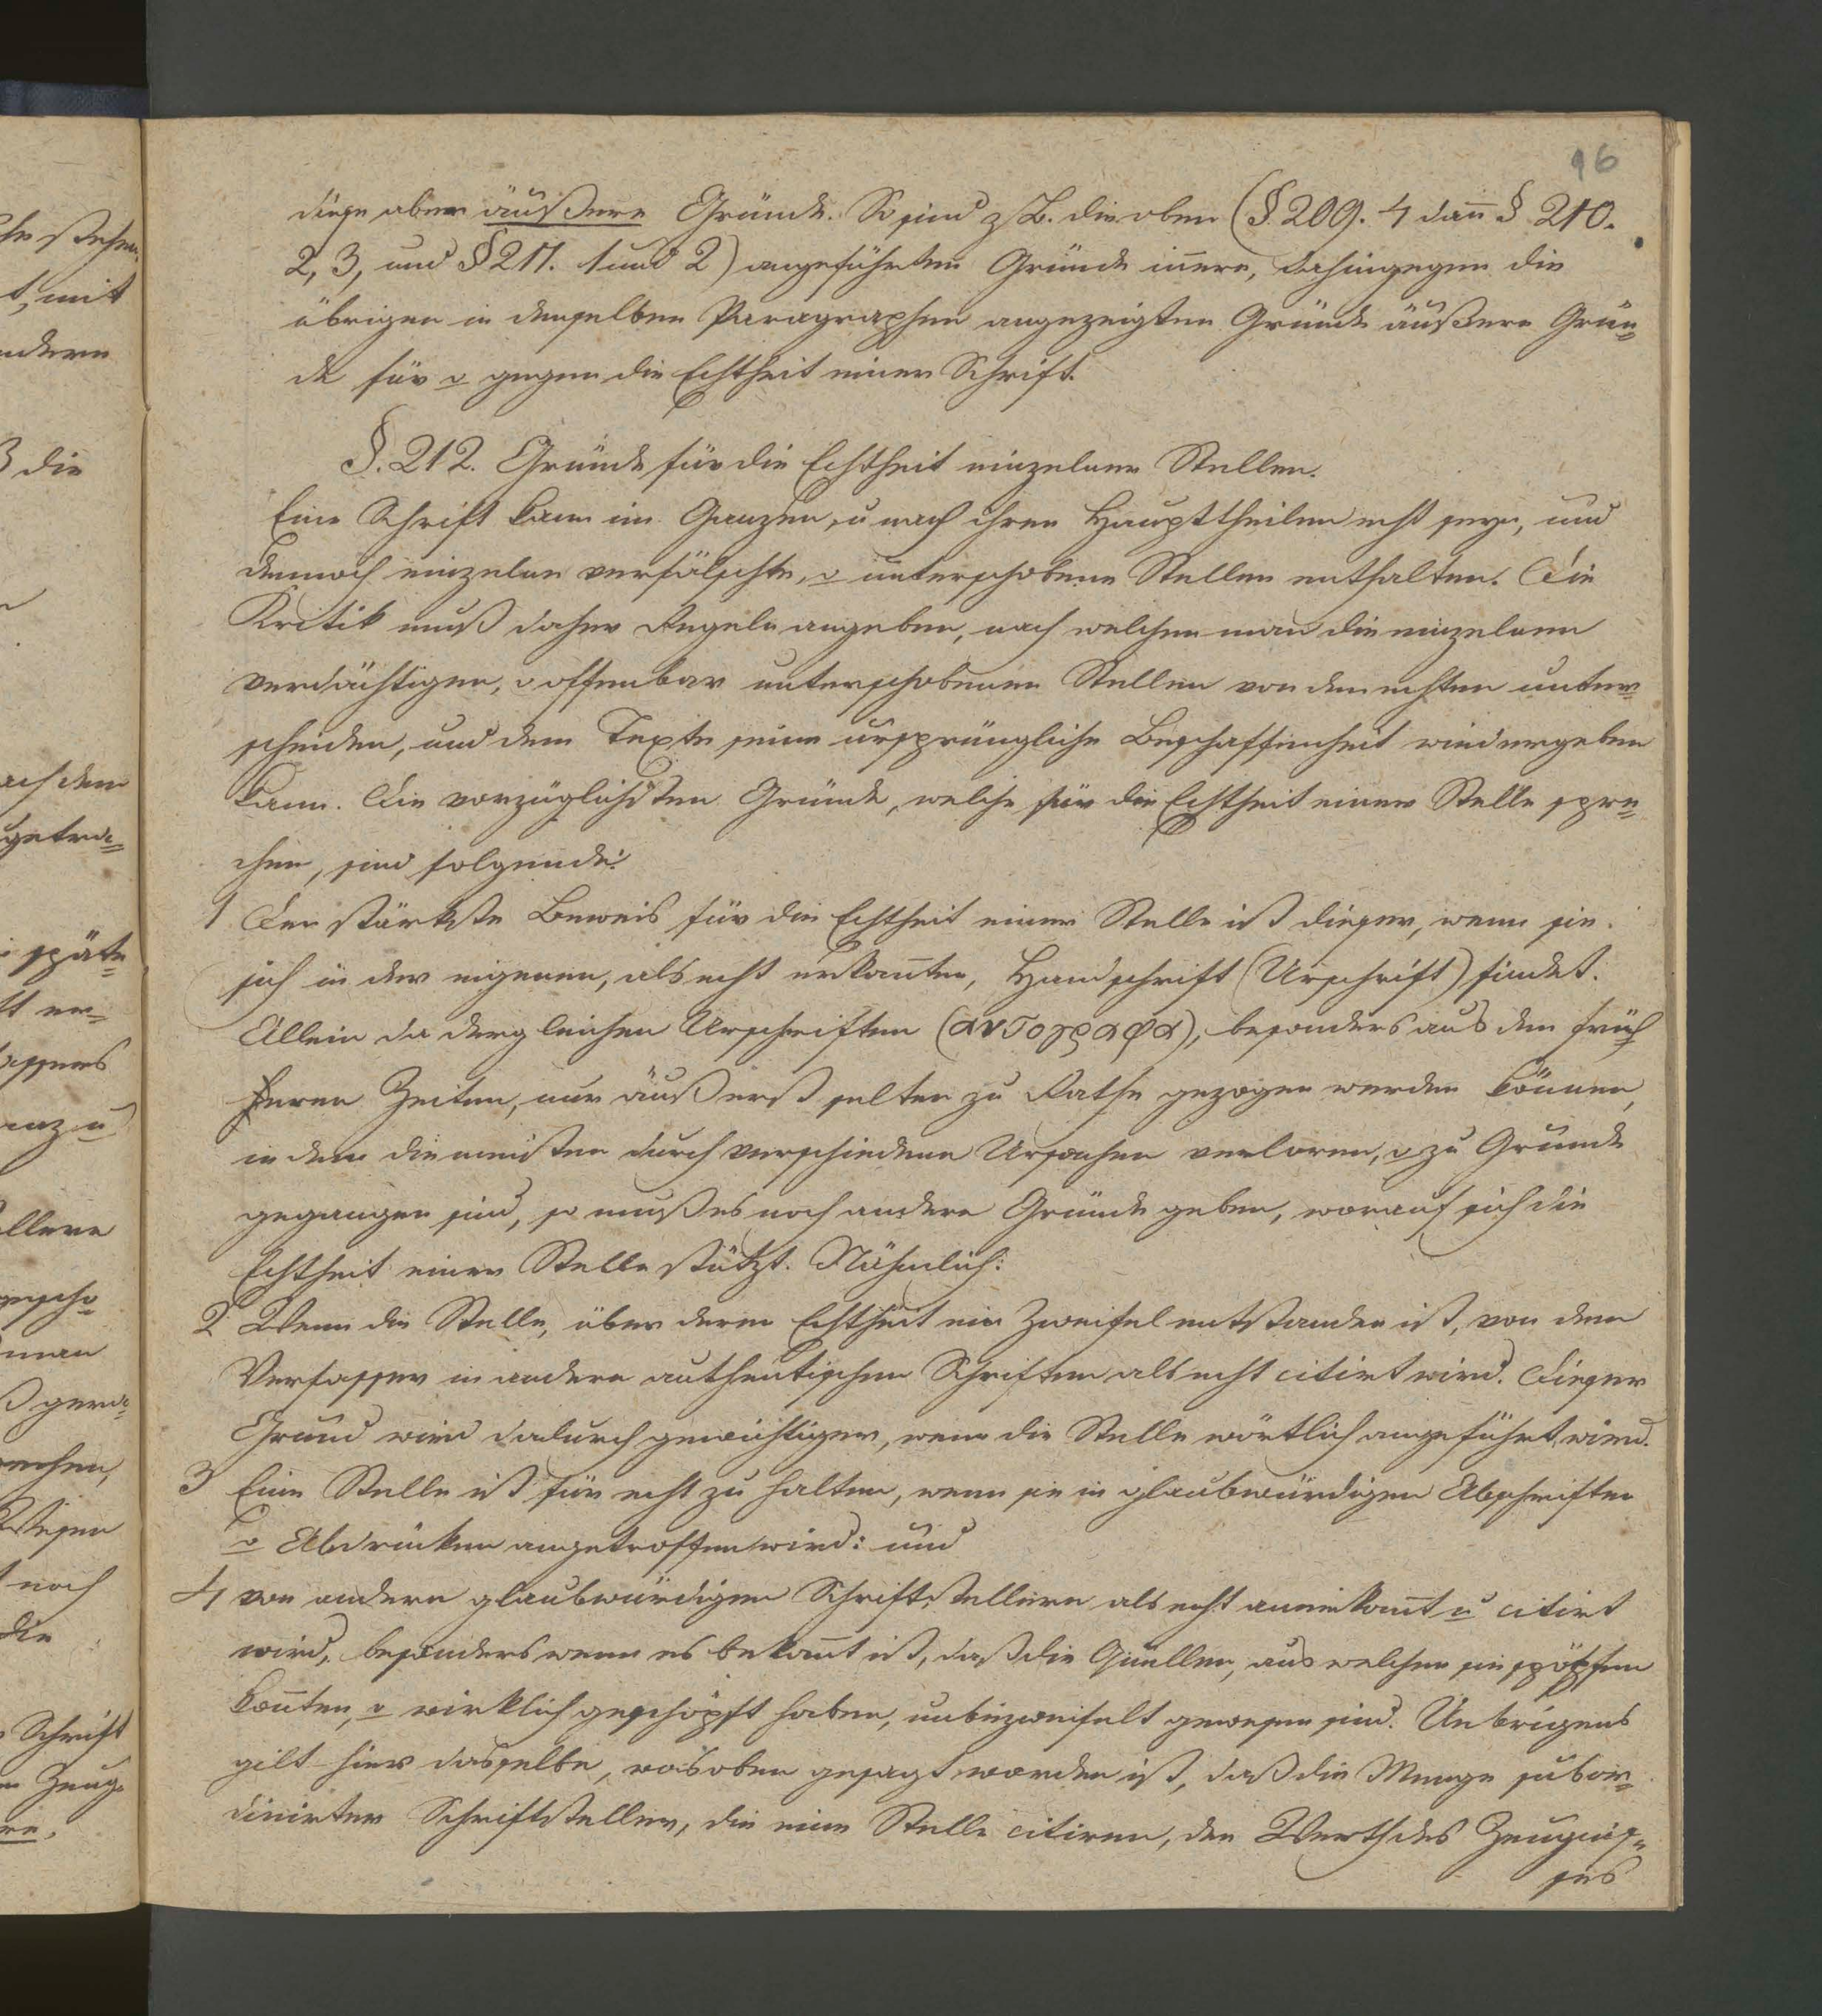 96
diese aber äußere Gründe. So sind z. B. die oben (§. 209. 4 dañ § 210.
2, 3, und § 211. 1 und 2) angeführten Gründe iñere, dahingegen die
übrigen in denselben Paragraphen angezeigten Gründe äußere Grün=
de für o gegen die Echtheit einer Schrift.
§. 212. Gründe für die Echtheit einzelner Stellen.
Eine Schrift kann im Ganzen, u nach ihren Haupttheilen echt seyn, und
dennoch einzelne verfälschte, o unterschobene Stellen enthalten. Die
Kritik muß daher Regeln angeben, nach welchen man die einzelnen
verdächtigen, o offenbar unterschobenen Stellen von den echten unter=
scheiden, und dem Texte seine ursprüngliche Beschaffenheit wiedergeben
kann. Die vorzüglichsten Gründe, welche für die Echtheit einer Stelle spre=
chen, sind folgende:
1 Der stärkste Beweis für die Echtheit einer Stelle ist dieser, wenn sie
sich in der eigenen, als echt erkañten, Handschrift (Urschrift) findet.
Allein da dergleichen Urschriften (αυτογραφα), besonders aus den früh
heren Zeiten, nur äußerst selten zu Rathe gezogen werden können,
indem die meisten durch verschiedene Ursachen verloren, o zu Grunde
gegangen sind, so muß es noch andere Gründe geben, worauf sich die
Echtheit einer Stelle stützt. Nähmlich:
2 Wenn die Stelle, über deren Echtheit ein Zweifel entstanden ist, von dem
Verfasser in andern authentischen Schriften als echt citirt wird. Dieser
Grund wird dadurch gewichtiger, wenn die Stelle wörtlich angeführt wird.
3 Eine Stelle ist für echt zu halten, wenn sie in glaubwürdigen Abschriften
o Abdrücken angetroffen wird: und
4 von andern glaubwürdigen Schriftstellern als echt anerkañt u citirt
wird, besonders wenn es bekañt ist, daß die Quellen, aus welchen sie schöpfen
koñten, o wirklich geschöpft haben, unbezweifelt gewesen sind. Uebrigens
gilt hier dasselbe, was oben gesagt worden ist, daß die Menge subor=
dinirter Schriftsteller, die eine Stelle citiren, den Werth des Zeugnis=
ses